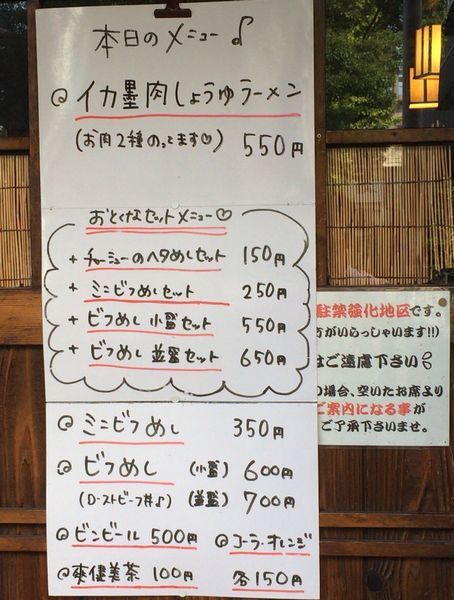 本日のメニュー♪
@ イカ墨肉しょうゆラーメン
(お肉2種のってます♡) 550円
おとくなセットメニュー♡
+ チャーシューのヘタめしセット 150円
+ ミニビフめしセット 250円
+ ビフめし 小盛セット 550円
+ ビフめし 並盛セット 650円
@ ミニビフめし 350円
@ ビフめし (小盛) 600円
(ローストビーフ丼♪) (並盛) 700円
@ ビンビール 500円 @ コーラ・オレンジ
@ 爽健美茶 100円 各150円
駐禁強化地区です。
がいらっしゃいます!!)
はご遠慮下さい
の場合、空いたお席より
ご案内になる事が
ご了承下さいませ。